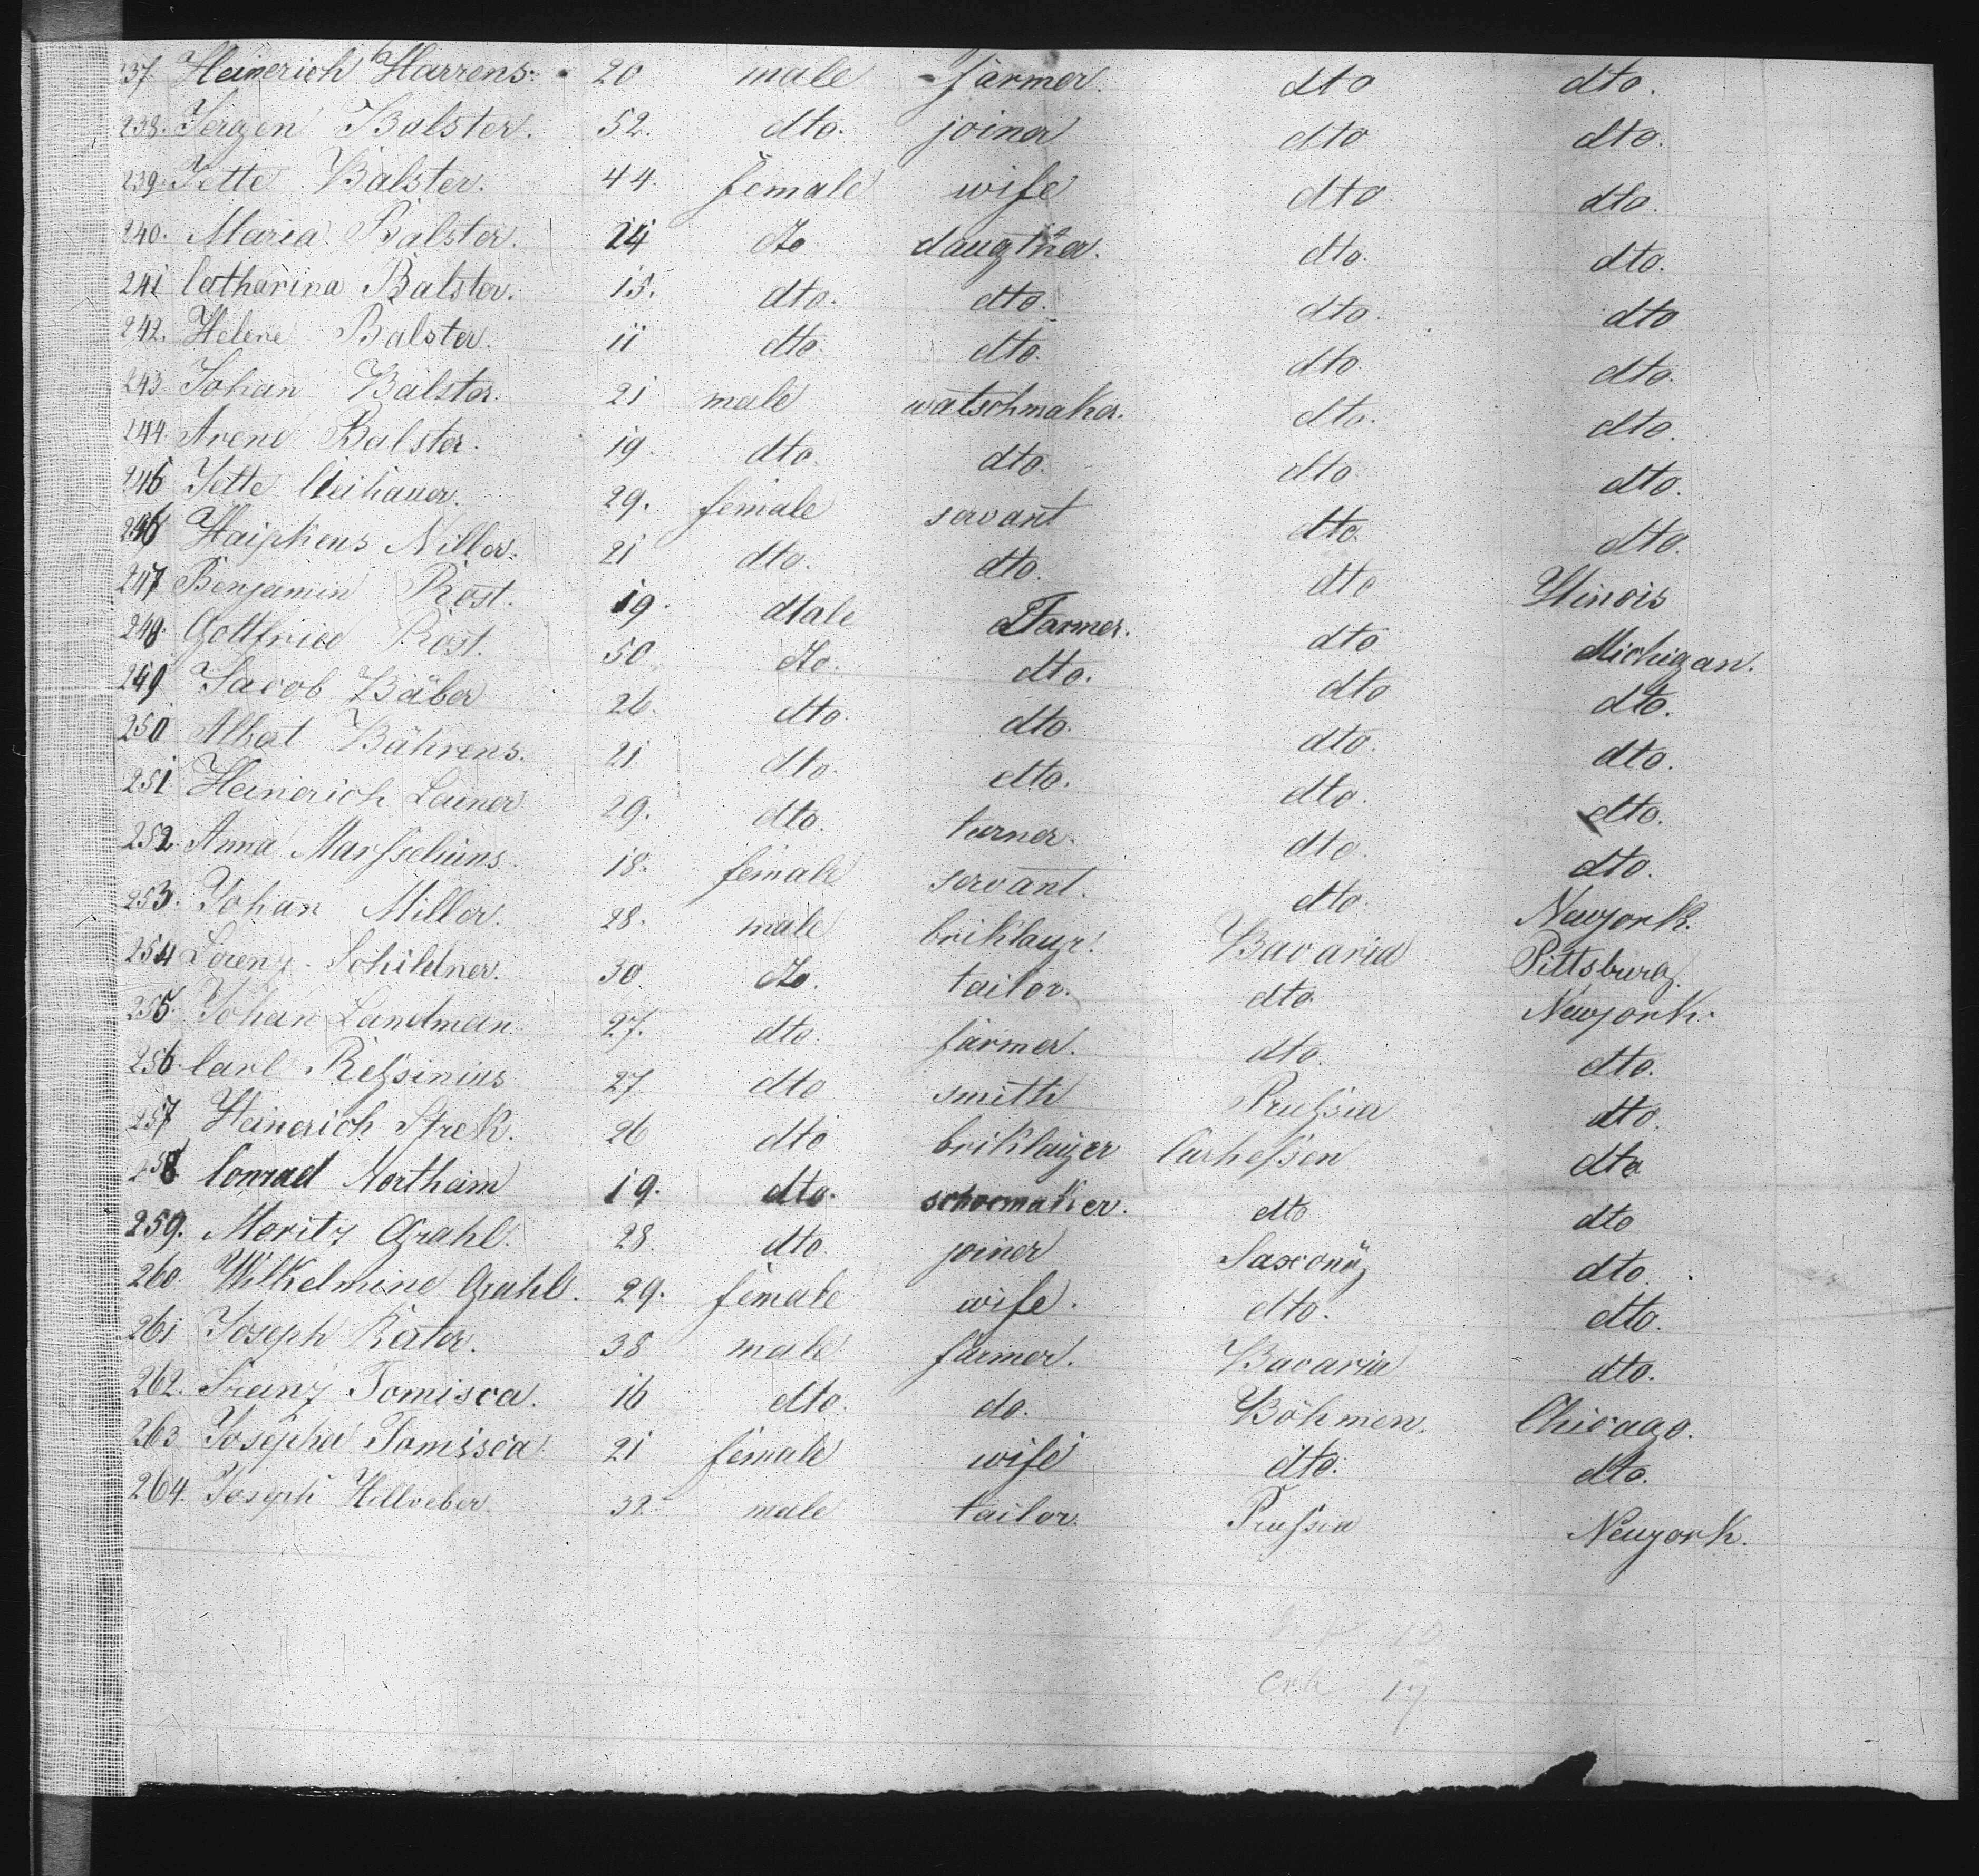 237. Heinerich Harrens. 20 male farmer. dto dto.
238. Jergen Balster. 52. dto. joiner dto dto.
239. Jette Balster. 44. female wife dto dto.
240. Maria Balster. 14 dto daugther. dto. dto.
241 Catharina Balster. 15. dto. dto. dto. dto
242. Helene Balster. 11 dto. dto. dto. dto.
243. Johan Balster. 21 male watschmaker. dto. dto.
244. Arend Balster. 19. dto. dto. dto dto.
245 Jette 29. female servant dto. dto.
246 Haiphens Niller. 21 dto. dto. dto Ilinois
247 Benjamin Rost. 19. dtale Farmer. dto Michigan.
248. Gottfried Rost. 50 dto. dto. dto dto.
249 Jacob Bäber 26. dto. dto. dto. dto.
250 Albert Bährens. 21 dto. dto. dto. dto.
251 Heinerich Leiner 29. dto. turner. dto. dto.
252. Anna 18. female servant. dto. Newjork.
253. Johan Miller. 28. male briklayr. Bavaria Pittsburg.
254 Lorenz Schildner. 30 dto. tailor. dto. Newjork.
255. Johan Landman 27. dto. farmer. dto. dto.
256. Carl Reßsinius 27 dto smith Prußsia dto.
257 Heinerich Strek. 26 dto briklaÿer Curheßen dto
258 Conrad Northeim 19. dto. schoemakker. dto dto
259. Moritz Grahl. 28. dto. joiner Saxonÿ dto.
260. Wilhelmine Grahl. 29. female wife. dto. dto.
261 Joseph Rater. 38 male farmer. Bavaria dto.
262. Franz Tomisca. 16 dto. do. Böhmen. Chicago.
263 Josepha Tomisca 21 female wife dto. dto.
264. Joseph Hellveber. 32 male tailor. Prußia Neuyork.